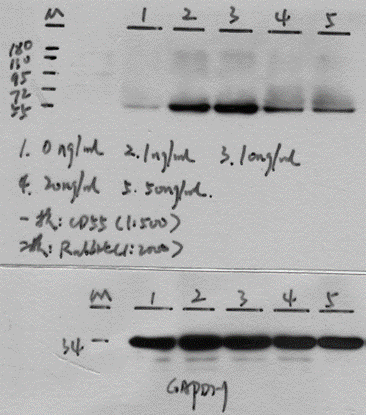 M 1 2 3 4 5
180
130
95
72
55
1. 0 ng/ml 2. 1ng/ml 3. 10ng/ml
4. 20ng/ml 5. 50ng/ml.
一抗: CD55 (1:500)
二抗: Rabbit (1:2000)
M 1 2 3 4 5
34
GAPDH